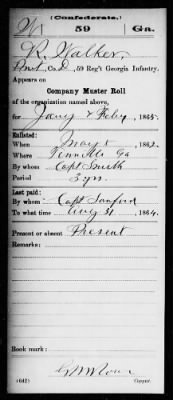 (Confederate.)
59 Ga.
R. Walker,
Pvt, Co. D, 59 Reg't Georgia Infantry.
Appears on
Company Muster Roll
of the organization named above,
for Jany & Feby, 1865.
Enlisted:
When May, 1862.
Where Tennille Ga
By whom Capt Smith
Period 3 yrs.
Last paid:
By whom Capt Sanford
To what time Aug 31, 1864.
Present or absent Present
Remarks:
Book mark:
(642) Copyist.